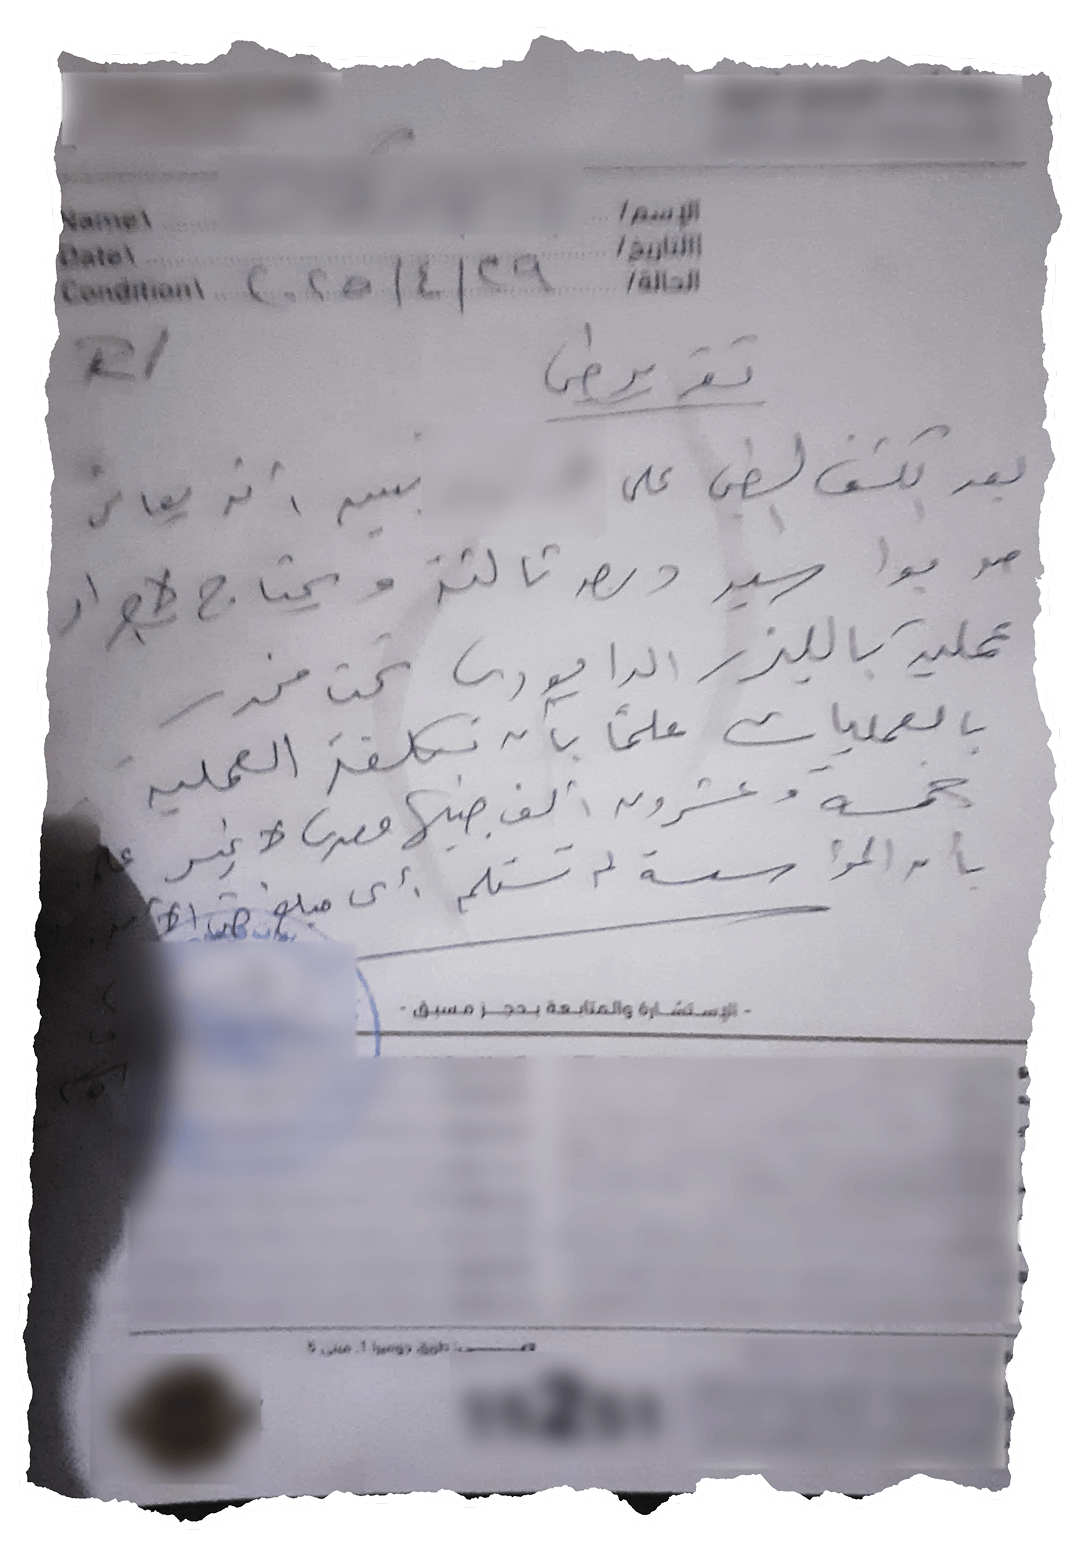 الإسم/ Name\
التاريخ/ Date\
الحالة/ Condition\ ٢٠٢٥/٤/٢٩
R/
تقرير طبى
بعد الكشف الطبى على تبين أنه يعانى
من بواسير درجة ثالثة ويحتاج لإجراء
عملية بالليزر الدايود تحت مخدر
بالعمليات علمًا بأن تكلفة العملية
خمسة وعشرون ألف جنيها مصريا لا غير
بأن المؤسسة لم تستلم أى مبلغ حتى الآن
- الإستشارة والمتابعة بحجز مسبق -